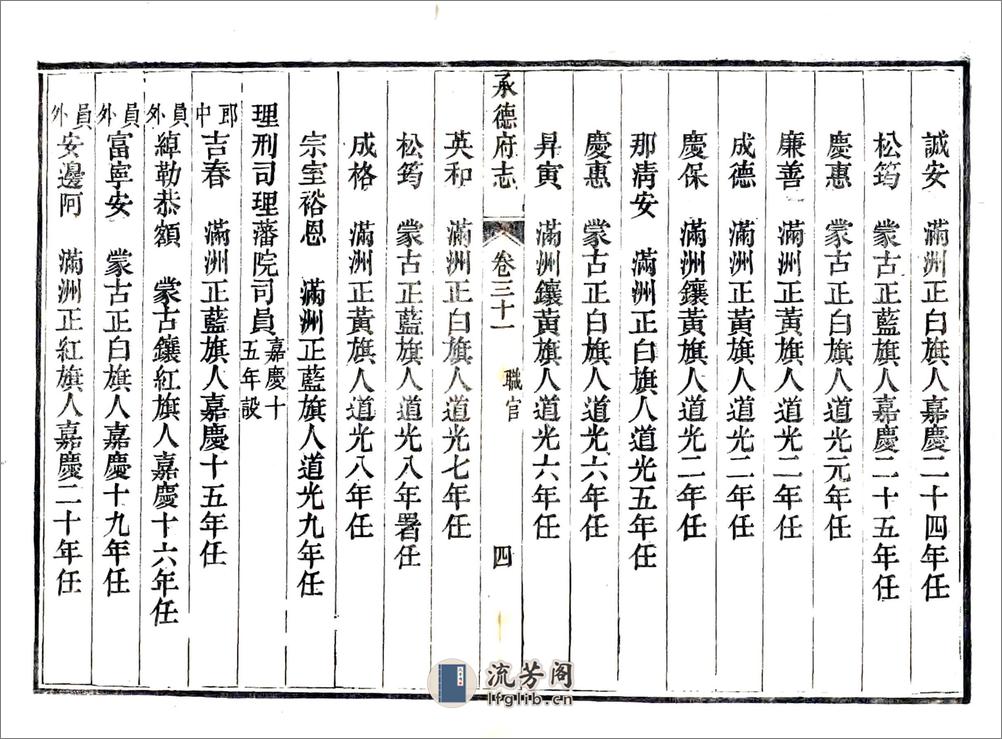 誠安　滿洲正白旗人嘉慶二十四年任
松筠　蒙古正藍旗人嘉慶二十五年任
慶惠　蒙古正白旗人道光元年任
廉善　滿洲正黃旗人道光二年任
成德　滿洲正黃旗人道光二年任
慶保　滿洲鑲黃旗人道光二年任
那清安　滿洲正白旗人道光五年任
慶惠　蒙古正白旗人道光六年任
昇寅　滿洲鑲黃旗人道光六年任
承德府志　卷三十一　職官　四
英和　滿洲正白旗人道光七年任
松筠　蒙古正藍旗人道光八年署任
成格　滿洲正黃旗人道光八年任
宗室裕恩　滿洲正藍旗人道光九年任
理刑司理藩院司員嘉慶十五年設
郎中吉春　滿洲正藍旗人嘉慶十五年任
員外綽勒恭額　蒙古鑲紅旗人嘉慶十六年任
員外富寧安　蒙古正白旗人嘉慶十九年任
員外安邊阿　滿洲正紅旗人嘉慶二十年任
流芳阁
lfglib.cn